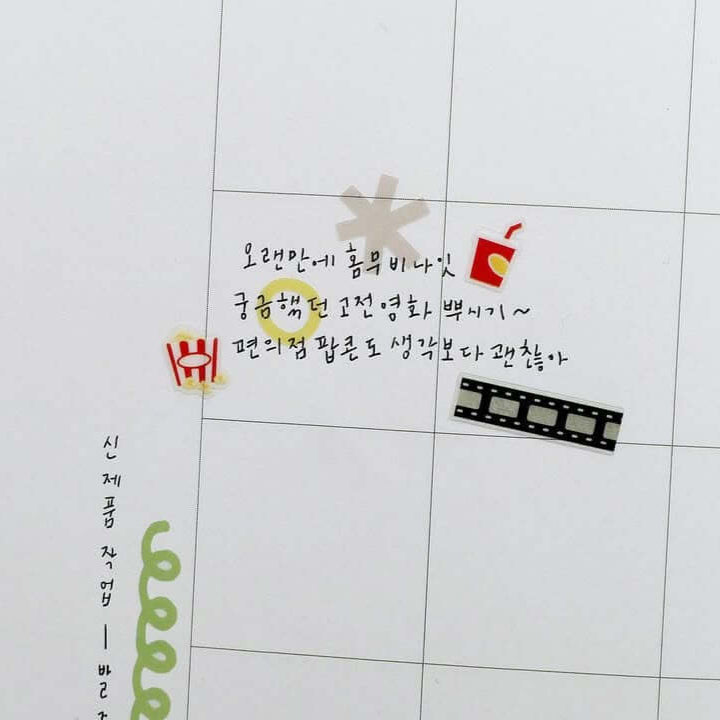 오랜만에 홈무비나잇
궁금했던 고전영화 뿌시기~
편의점 팝콘도 생각보다 괜찮아
신제품 작업 — 발